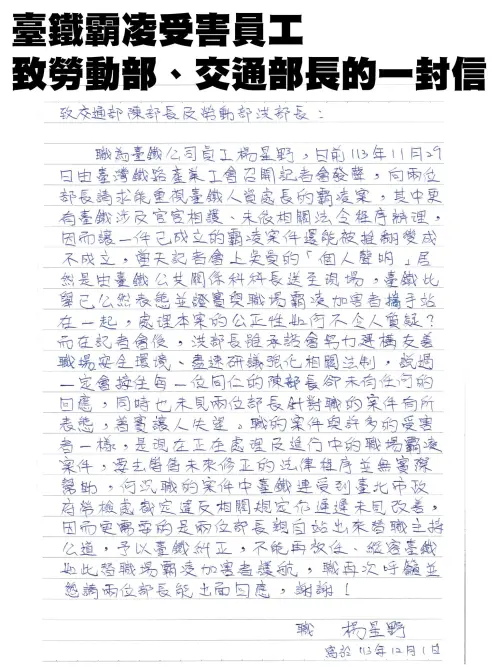 臺鐵霸凌受害員工
致勞動部、交通部長的一封信
致交通部陳部長及勞動部洪部長：
職為臺鐵公司員工楊星野，日前113年11月29
日由臺灣鐵路產業工會召開記者會發聲，向兩位
部長請求能重視臺鐵人資處長的霸凌案，其中更
有臺鐵涉及官官相護、未依相關法令程序辦理，
因而讓一件已成立的霸凌案件還能被推翻變成
不成立，當天記者會上吳員的「個人聲明」居
然是由臺鐵公共關係科科長送至現場，臺鐵此
舉已公然表態並證實與職場霸凌加害者攜手站
在一起，處理本案的公正性如何不令人質疑？
而在記者會後，洪部長雖承諾會努力建構友善
職場安全環境、盡速研議強化相關法制，說過
一定會接住每一位同仁的陳部長卻未有任何的
回應，同時也未見兩位部長針對職的案件有所
表態，著實讓人失望。職的案件與許多的受害
者一樣，是現在正在處理及進行中的職場霸凌
案件，要主管機關未來修正的法律程序並無實際
幫助，何況職的案件中臺鐵連受到臺北市政
府勞檢處裁定違反相關規定仍遲遲未見改善，
因而更需要的是兩位部長親自站出來替職主持
公道，予以臺鐵糾正，不能再放任、縱容臺鐵
如此替職場霸凌加害者護航，職再次呼籲並
懇請兩位部長能出面回應，謝謝！
職 楊星野
寫於113年12月1日